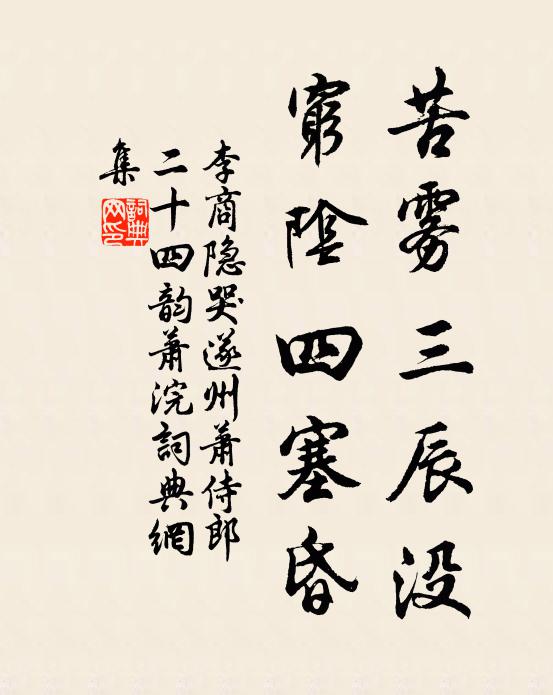 苦雾三辰没
窮陰四塞昏
李商隐哭遂州萧侍郎
二十四韵萧浣詞典網
集
詞典網印